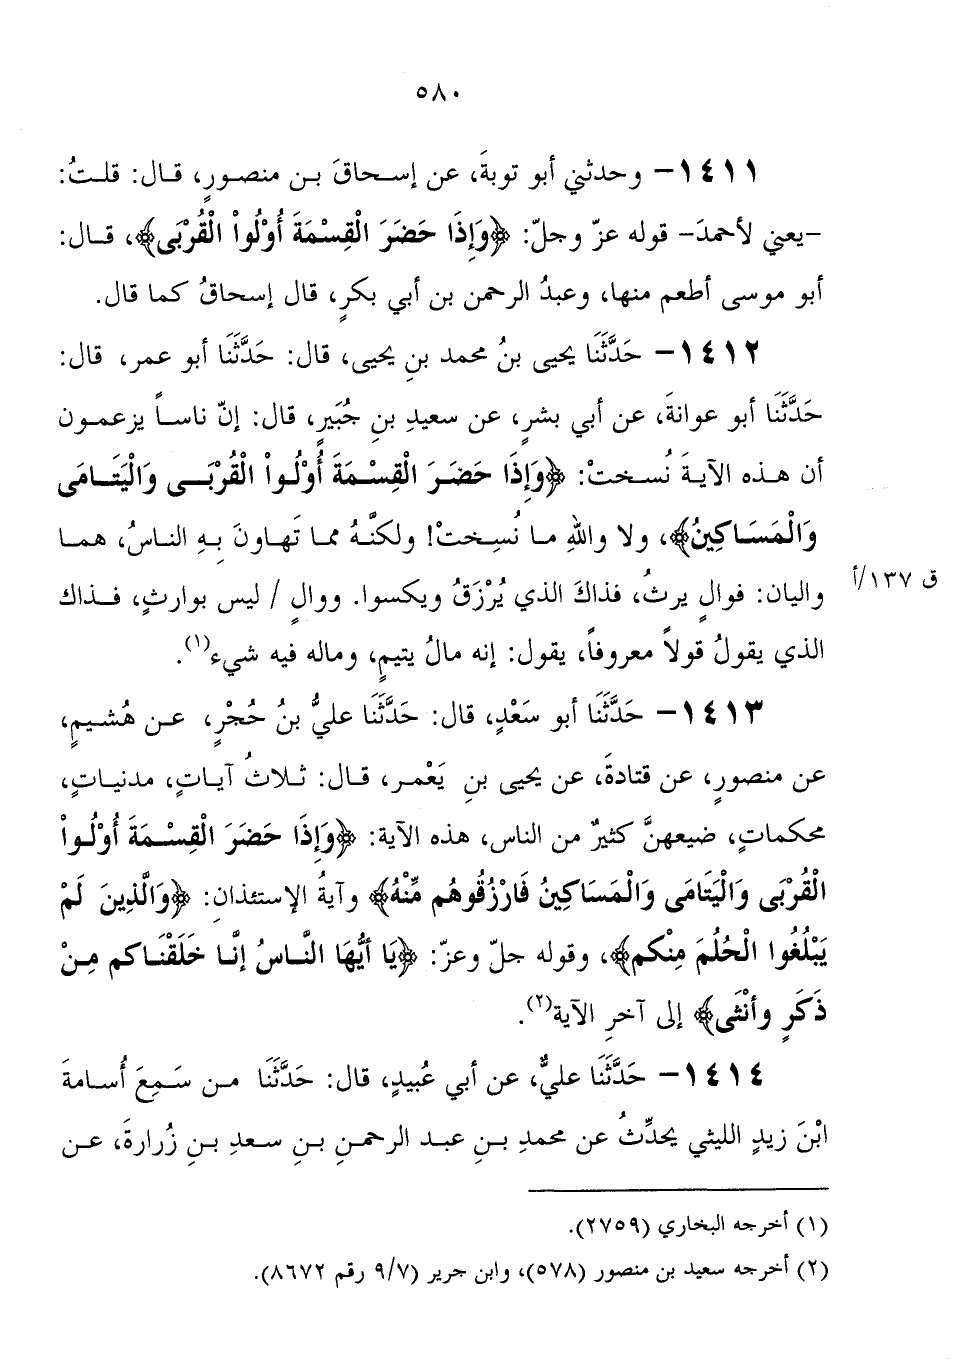 ٥٨٠
١٤١١- وحدثني أبو توبةَ، عن إسـحاقَ بـن منصـورٍ، قـال: قلـتُ:
-يعني لأحمدَ- قوله عزّ وجلّ: ﴿وَإِذَا حَضَرَ الْقِسْمَةَ أُوْلُواْ الْقُرْبَى﴾، قـال:
أبو موسى أطعم منها، وعبدُ الرحمن بن أبي بكرٍ، قال إسحاقُ كما قال.
١٤١٢- حَدَّثَنَا يحيى بنُ محمد بنِ يحيى، قال: حَدَّثَنَا أبو عمر، قال:
حَدَّثَنَا أبو عوانةَ، عن أبي بشرٍ، عن سعيدِ بنِ جُبَيرٍ، قال: إنّ ناسـاً يزعمـون
أن هـذه الآيـةَ نُسـختْ: ﴿وَإِذَا حَضَـرَ الْقِسْـمَةَ أُوْلُـواْ الْقُرْبَـى وَالْيَتَـامَى
وَالْمَسَـاكِينُ﴾، ولا واللهِ مـا نُسِـختْ! ولكنَّـهُ ممـا تَهـاونَ بِـهِ النـاسُ، همـا
واليان: فوالٍ يرثُ، فذاكَ الذي يُرْزَقُ ويكسوا. ووالٍ / ليس بوارثٍ، فـذاك
ق ١٣٧/أ
الذي يقولُ قولاً معروفاً، يقول: إنه مالُ يتيمٍ، وماله فيه شيء(١).
١٤١٣- حَدَّثَنَا أبو سَعْدٍ، قال: حَدَّثَنَا عليُّ بنُ حُجْرٍ، عـن هُشـيمٍ،
عن منصورٍ، عن قتادةَ، عن يحيى بنِ يَعْمر، قـال: ثـلاثُ آيـاتٍ، مدنيـاتٍ،
محكماتٍ، ضيعهنَّ كثيرٌ من الناس، هذه الآية: ﴿وَإِذَا حَضَرَ الْقِسْـمَةَ أُوْلُـواْ
الْقُرْبَى وَالْيَتَامَى وَالْمَسَاكِينُ فَارْزُقُوهُم مِّنْهُ﴾ وآيةُ الإستئذانِ: ﴿وَالَّذِينَ لَمْ
يَبْلُغُوا الْحُلُمَ مِنْكم﴾، وقوله جلّ وعزّ: ﴿يَا أيُّهَا النَّاسُ إنَّـا خَلَقْنَـاكم مِـنْ
ذَكَرٍ وأنْثى﴾ إلى آخرِ الآية(٢).
١٤١٤- حَدَّثَنَا عليٌّ، عن أبي عُبيدٍ، قال: حَدَّثَنَا مـن سَـمِعَ أُسـامةَ
ابْنَ زيدٍ الليثي يحدِّثُ عن محمدِ بـن عبـد الرحمـنِ بـنِ سـعدِ بـنِ زُرارةَ، عـن
(١) أخرجه البخاري (٢٧٥٩).
(٢) أخرجه سعيد بن منصور (٥٧٨)، وابن جرير (٩/٧ رقم ٨٦٧٢).